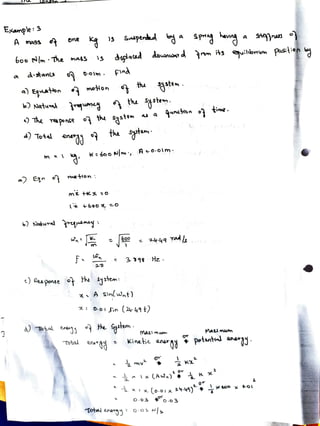 Example: 3
A mass of one kg is suspended by a spring having a stiffness of
600 N/m. The mass is displaced downward from its equilibrium position by
a distance of 0.01m. Find
a) Equation of motion of the system.
b) Natural frequency of the system.
c) The response of the system as a function of time.
d) Total energy of the system.
m = 1 kg, K = 600 N/m, A = 0.01m.
a) Eqn of motion:
mẍ + Kx = 0
1ẍ + 600x = 0
b) Natural frequency:
ωn = √K/m = √600/1 = 24.49 rad/s
f = ωn/2π = 3.898 Hz.
c) Response of the system:
x = A sin(ωnt)
x = 0.01 sin (24.49t)
d) Total energy of the system.
Total energy = Maximum Kinetic energy or Maximum potential energy.
= ½ mv² or ½ kx²
= ½ m × (Aωn)² or ½ k x²
= ½ × 1 × (0.01 × 24.49)² or ½ × 600 × 0.01²
= 0.03 or 0.03
Total energy = 0.03 N/s